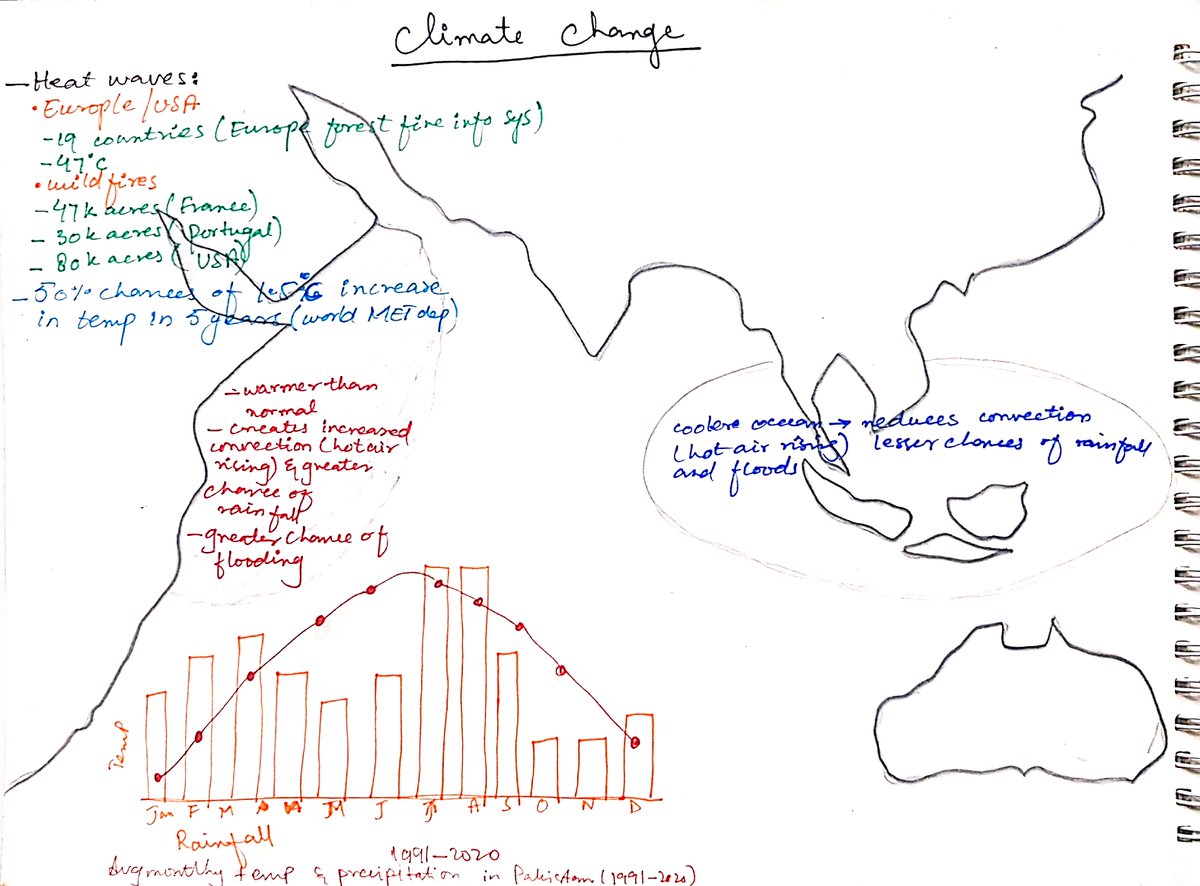 Climate Change
- Heat waves:
• Europle/USA
- 19 countries (Europe forest fire info sys)
- 47°C
• wild fires
- 47k acres (France)
- 30k acres (Portugal)
- 80k acres (USA)
- 50% chances of 1.5°C increase
in temp in 5 years (world MET dep)
- warmer than
normal
- creates increased
convection (hot air
rising) & greater
chance of
rainfall
- greater chance of
flooding
coolere occean → reduces convection
(hot air rising) lesser chances of rainfall
and floods
Temp
Jan F M A M J J A S O N D
Rainfall
1991-2020
Avg monthly temp & precipitation in Pakistan (1991-2020)